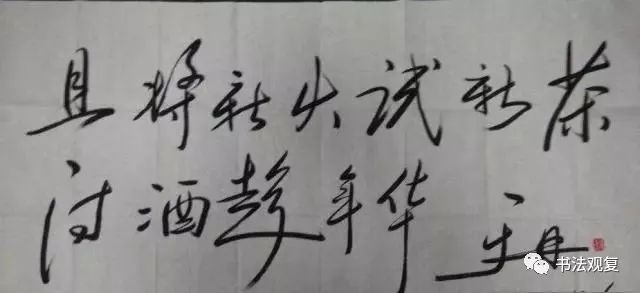 且将新火试新茶
诗酒趁年华 于丹
书法观复